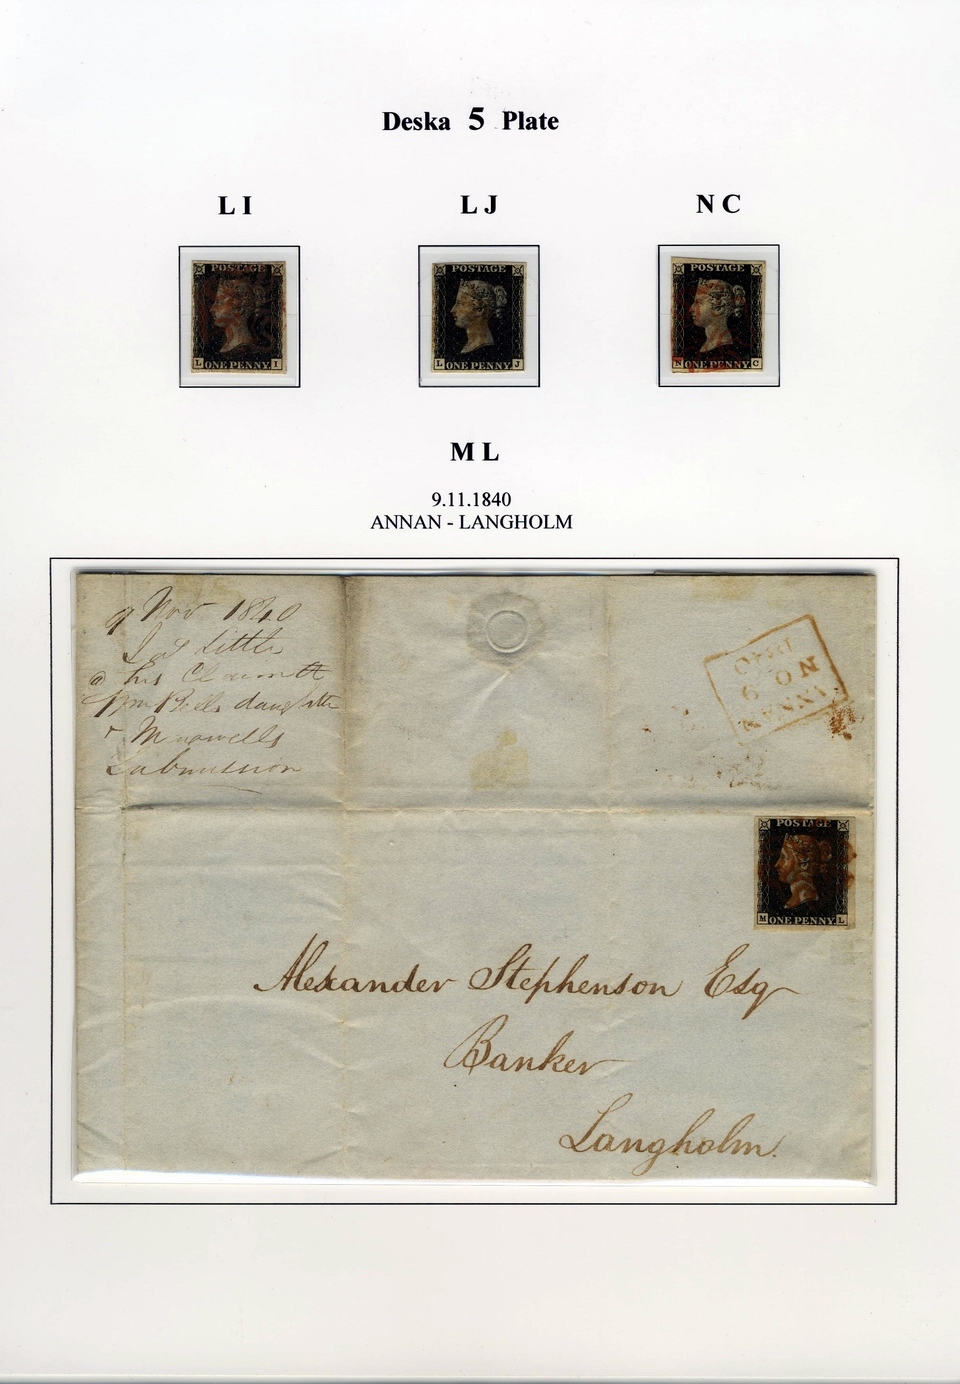 Deska 5 Plate
L I
L J
N C
POSTAGE
L ONE PENNY I
POSTAGE
L ONE PENNY J
POSTAGE
N ONE PENNY C
M L
9.11.1840
ANNAN - LANGHOLM
9 Nov 1840
Little
his
daughter
Maxwells
Submission
ANNAN
NO 9
1840
POSTAGE
M ONE PENNY L
Alexander Stephenson Esq
Banker
Langholm.